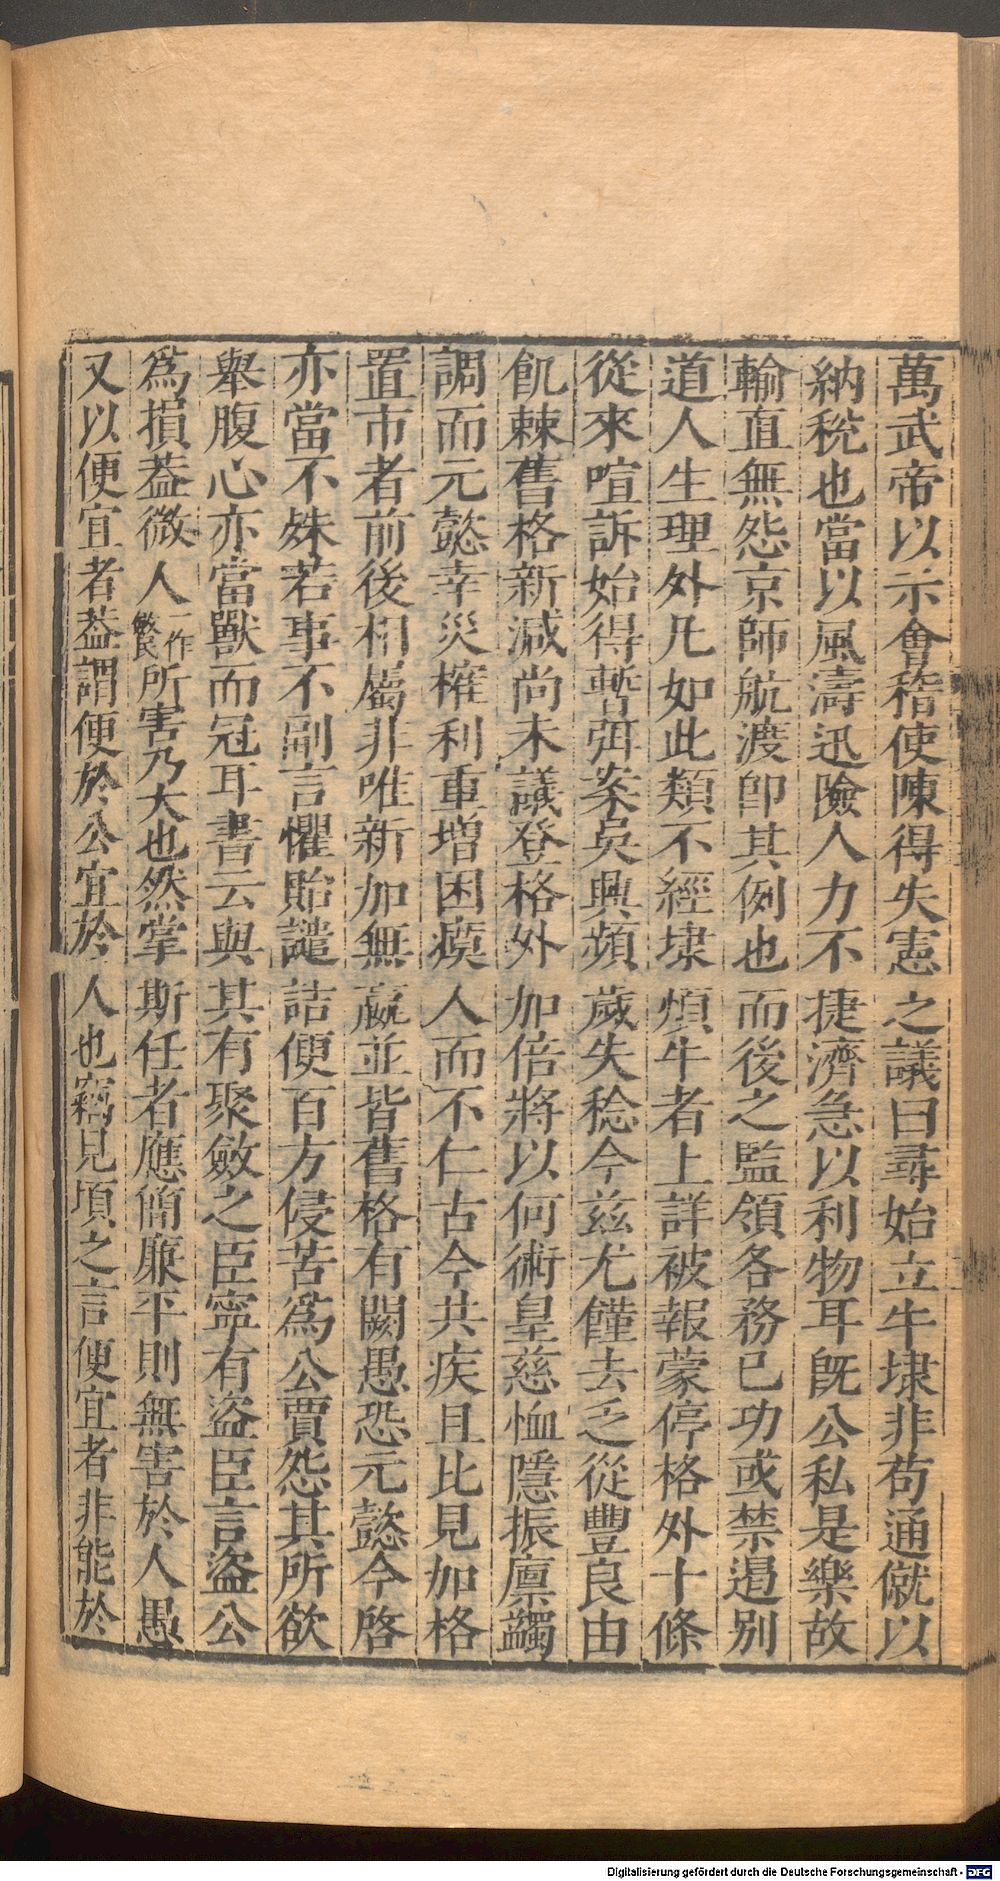 萬武帝以示會稽使陳得失憲之議曰尋始立牛埭非苟通僦以
納稅也當以風濤迅險人力不捷濟急以利物耳旣公私是樂故
輸直無怨京師航渡卽其例也而後之監領各務已功或禁遏别
道人生理外凡如此類不經埭煩牛者上詳被報蒙停格外十條
從來喧訴始得暫弭案吳興頻歲失稔今兹尤饉去乏從豐良由
飢棘舊格新減尚未議登格外加倍將以何術皇慈恤隱振廪蠲
調而元懿幸災㩁利重增困瘼人而不仁古今共疾且比見加格
置市者前後相屬非唯新加無嬴並皆舊格有闕愚恐元懿今啓
亦當不殊若事不副言懼貽譴詰便百方侵苦為公賈怨其所欲
舉腹心亦當獸而冠耳書云與其有聚斂之臣寧有盜臣言盜公
為損葢微人一作繁民所害乃大也然掌斯任者應簡廉平則無害於人愚
又以便宜者葢謂便於公宜於人也竊見頃之言便宜者非能於
Digitalisierung gefördert durch die Deutsche Forschungsgemeinschaft - DFG